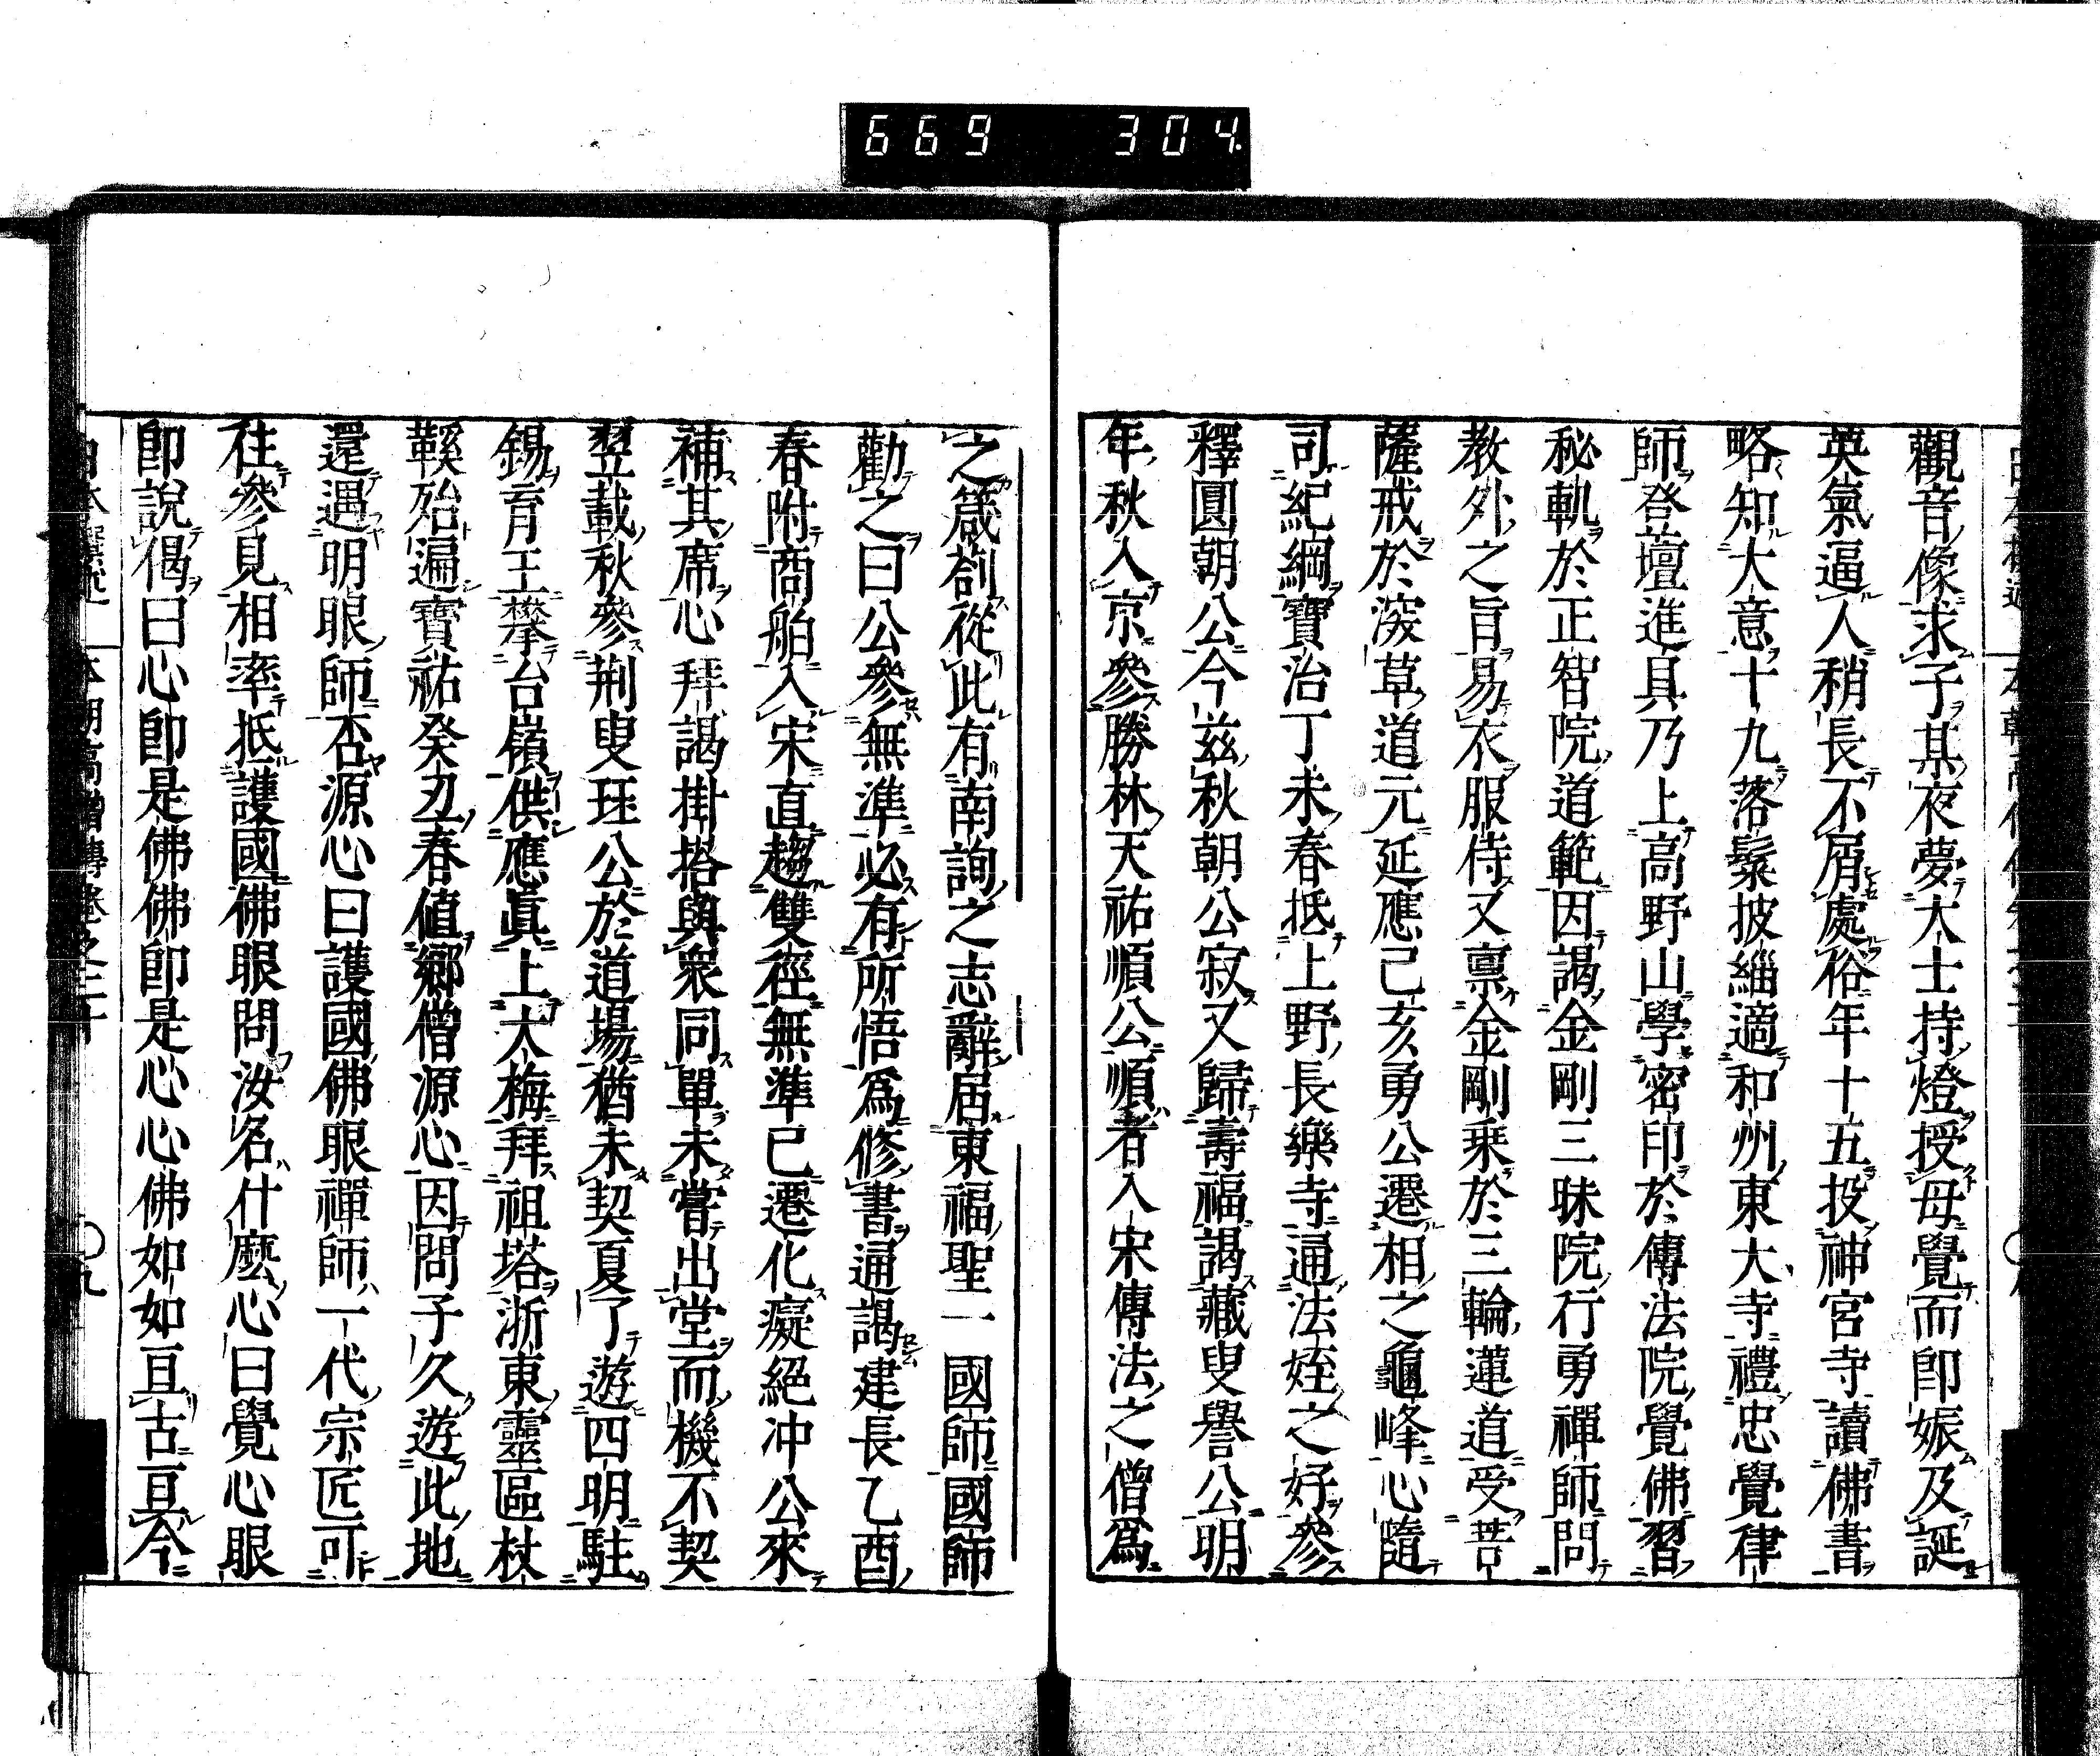 669 304
觀音像求子某夜夢大士持燈授母覺而卽娠及誕
英氣逼人稍長不屑處俗年十五投神宮寺讀佛書
略知大意十九落鬀披緇適和州東大寺禮忠覺律
師登壇進具乃上高野山學密印於傳法院覺佛習
秘軌於正智院道範因謁金剛三昧院行勇禪師問
教外之旨易衣服侍又禀金剛乘於三輪蓮道受菩
薩戒於深草道元延應己亥勇公遷相之龜峰心隨
司紀綱寶治丁未春抵上野長樂寺通法姪之好參
釋圓朝公今茲秋朝公寂又歸壽福謁藏叟譽公明
年秋入京參勝林天祐順公順者入宋傳法之僧爲
之箴劄從此有南詢之志辭居東福聖一國師國師
勸之曰公參無準必有所悟爲修書通謁建長乙酉
春附商舶入宋直趨雙徑無準已遷化癡絕冲公來
補其席心拜謁掛搭與衆同單未嘗出堂而機不契
翌載秋參荆叟珏公於道場猶未契夏了遊四明駐
錫育王攀台嶺供應眞上大梅拜祖塔浙東靈區杖
鞵殆遍寶祐癸丑春値鄉僧源心因問子久遊此地
還遇明眼師否源心曰護國佛眼禪師一代宗匠可
往參見相率抵護國佛眼問汝名什麼心曰覺心眼
卽說偈曰心卽是佛佛卽是心心佛如如亘古亘今
本朝高僧傳卷之二十 ○九